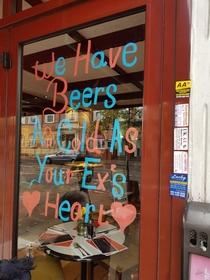 We Have
Beers
As Cold As
Your Ex's
Heart
AA